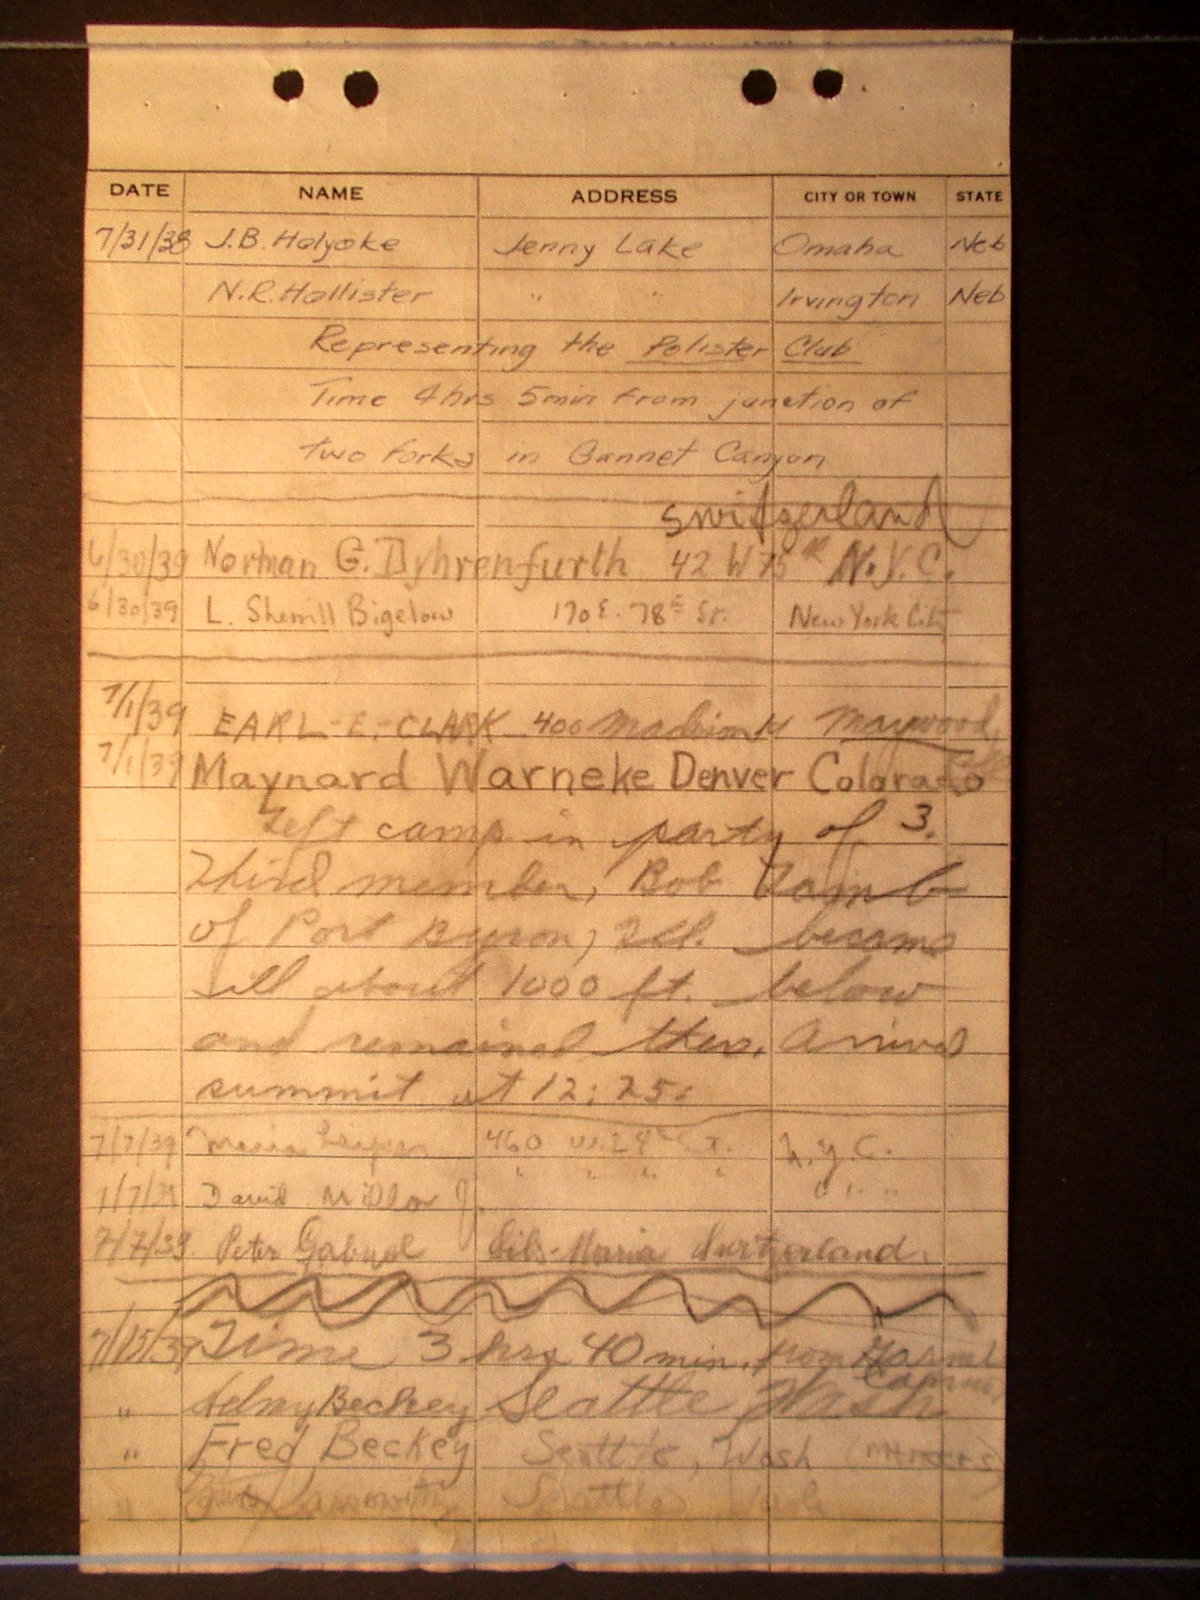 DATE NAME ADDRESS CITY OR TOWN STATE
7/31/38 J.B. Holyoke Jenny Lake Omaha Neb
N.R. Hollister " " Irvington Neb
Representing the Polister Club
Time 4hrs 5min from junction of
two forks in Gannet Canyon
Switzerland
6/30/39 Norman G. Dyhrenfurth 42 W 75th N.Y.C.
6/30/39 L. Sherrill Bigelow 170 E. 78th St. New York City
7/1/39 EARL E. CLARK 400 Madison St Maywood,
7/1/39 Maynard Warneke Denver Colorado
Left camp in party of 3.
Third member, Bob
of Port Byron, Ill. became
ill about 1000 ft. below
and remained there. Arrived
summit at 12:25.
7/7/39 Maria 460 W. 24th St. N.Y.C.
7/7/39 David Millar Jr. " " " " " " "
7/7/39 Peter Gabriel Sils-Maria Switzerland.
7/15/39 Time 3 hrs 40 min. from Gannet
Camp,
" Helmy Beckey Seattle Wash
" Fred Beckey Seattle, Wash
" Seattle